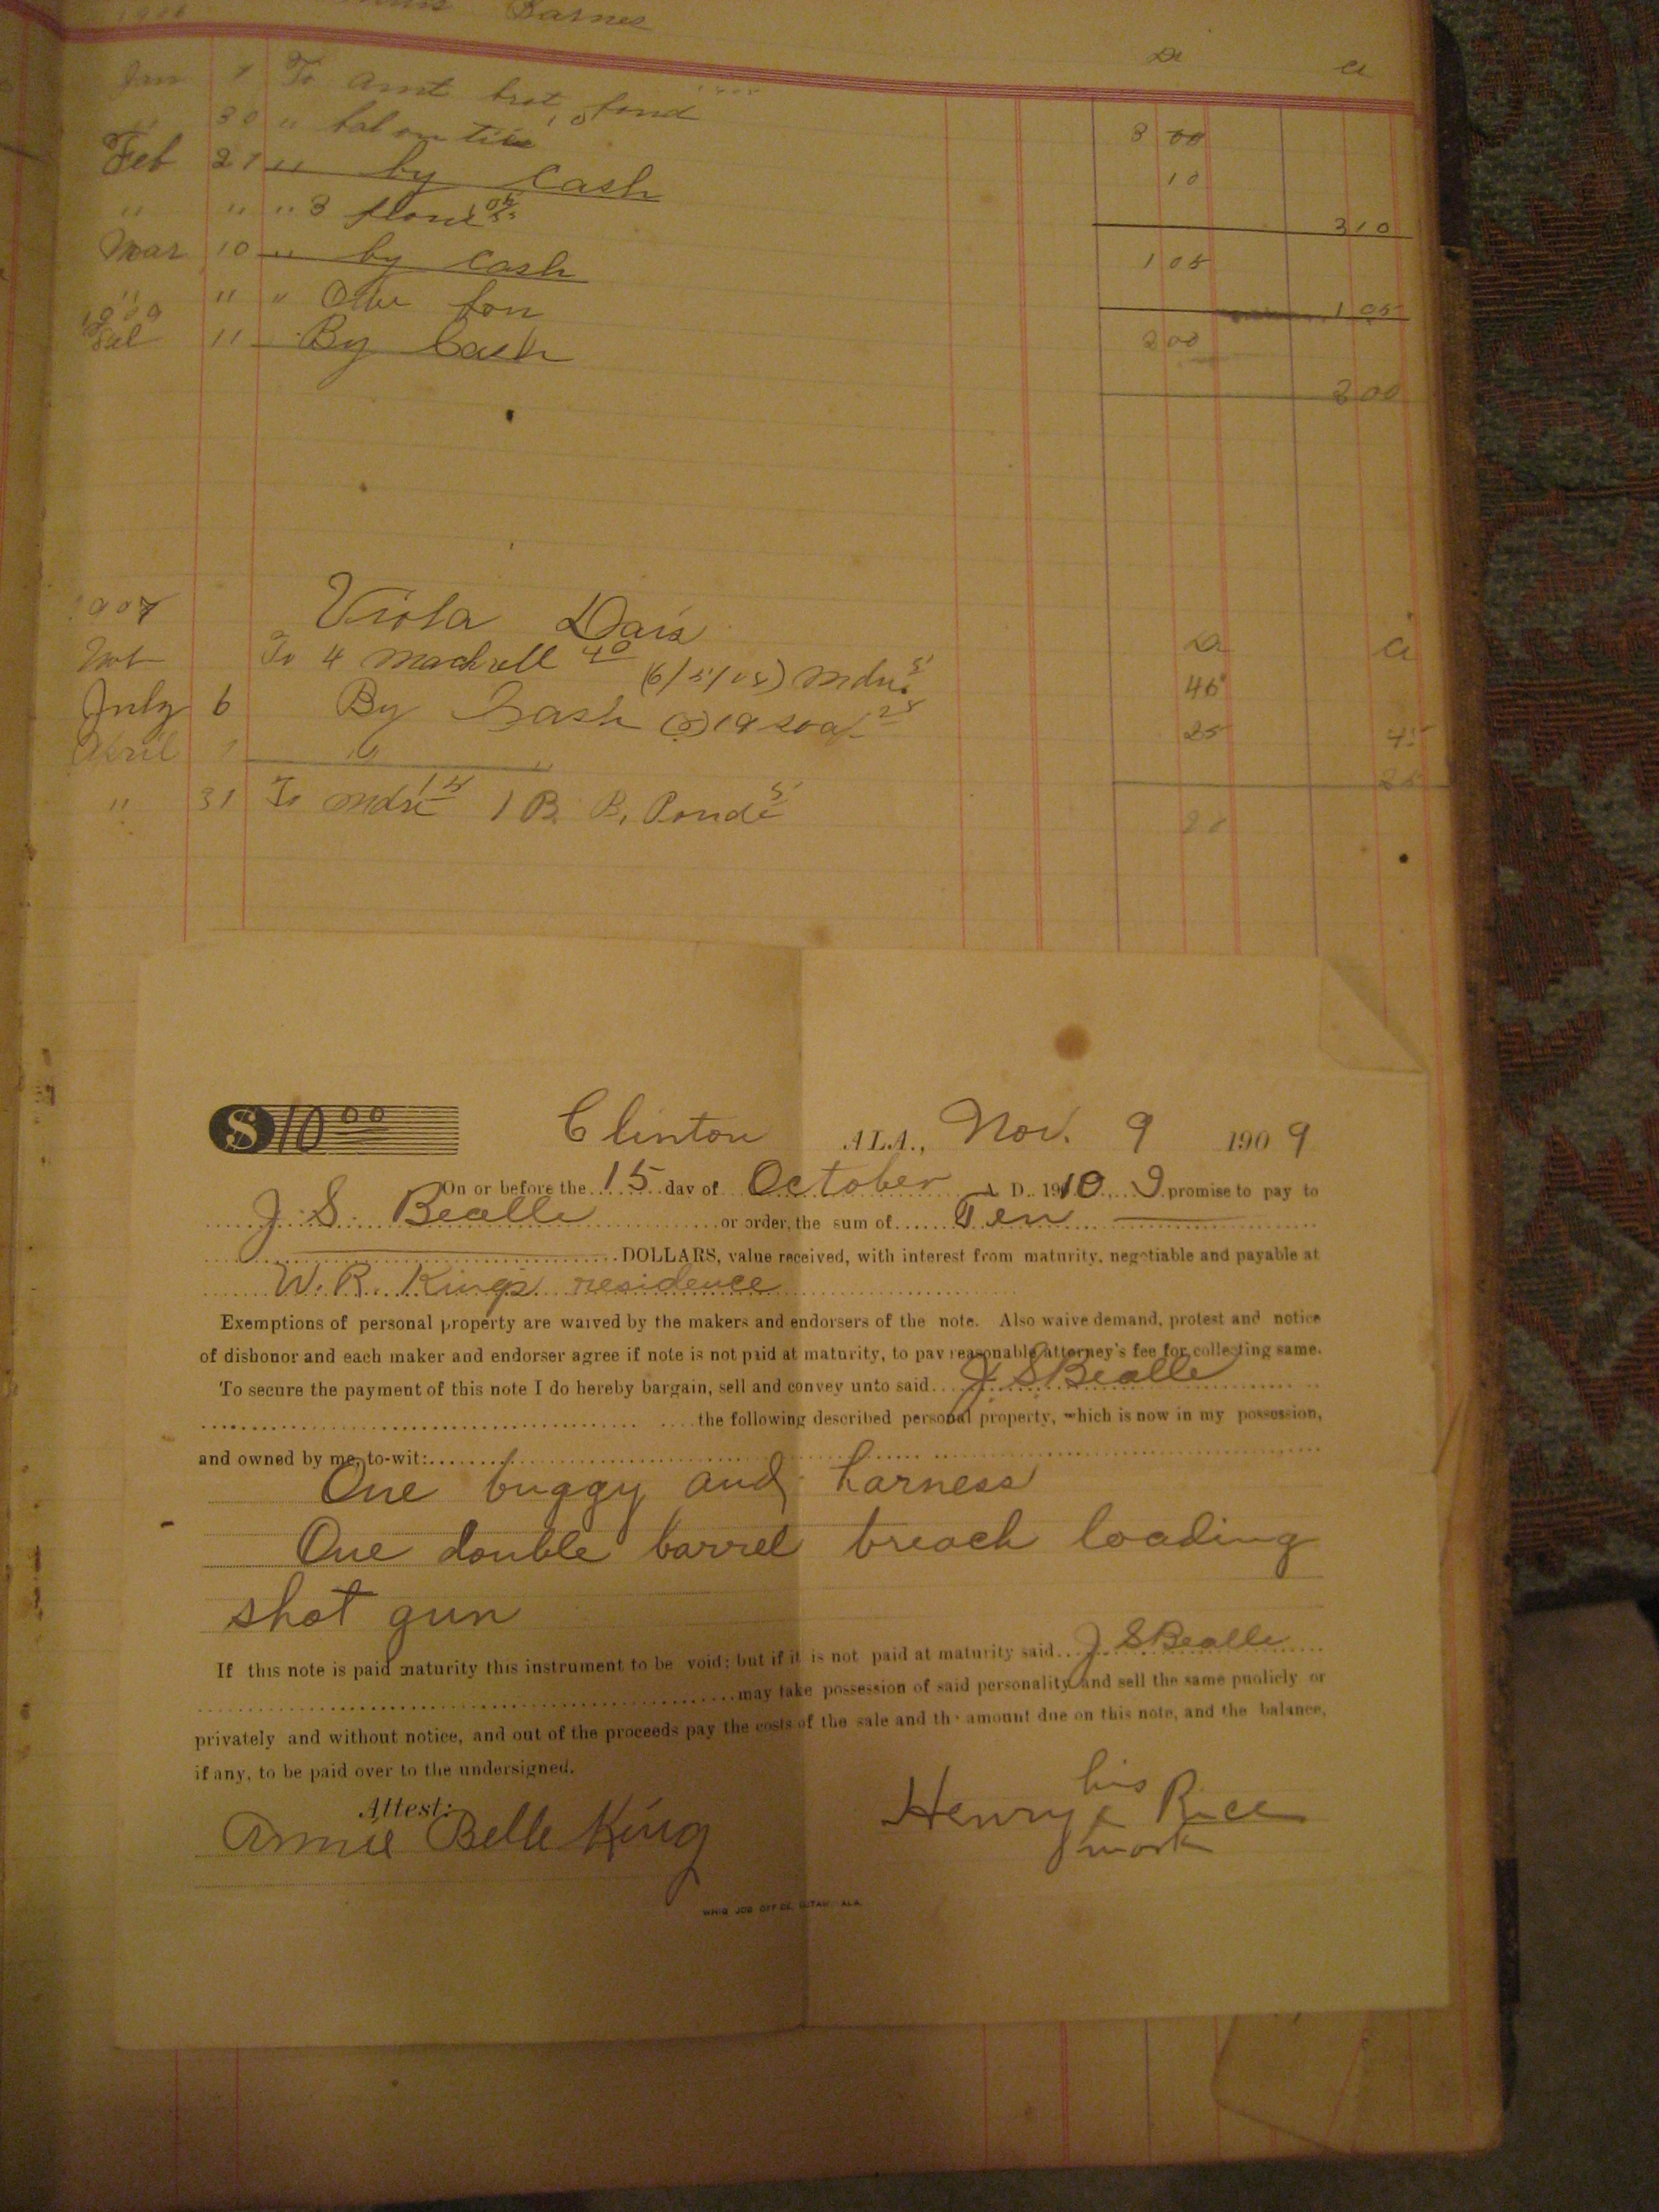 Barnes
Dr Cr
Jan 1 To Amt brot, ford 3 00
" 30 " bal on 10
Feb 21 " by cash 3 10
" " " 3 flour 1 05
Mar 10 " by cash 1 05
" " " 2 00
1909
Feb 11 By Cash 2 00
Viola Davis
Dr Cr
To 4 mackrell 40 (6/5/08) mdse 5 45
July 6 By Cash 19 soap 25 25 45
April
" 31 To mdse 15 1 B. P. Pond 5
$10 00 Clinton ALA., Nov. 9 1909
On or before the 15 day of October A. D. 1910, I promise to pay to
J. S. Bealle or order, the sum of Ten
DOLLARS, value received, with interest from maturity, negotiable and payable at
W. R. Kings residence
Exemptions of personal property are waived by the makers and endorsers of the note. Also waive demand, protest and notice
of dishonor and each maker and endorser agree if note is not paid at maturity, to pay reasonable attorney's fee for collecting same.
To secure the payment of this note I do hereby bargain, sell and convey unto said J. S Bealle
the following described personal property, which is now in my possession,
and owned by me, to-wit:
One buggy and harness
One double barrel breach loading
shot gun
If this note is paid maturity this instrument to be void; but if it is not paid at maturity said J. S Bealle
may take possession of said personality and sell the same publicly or
privately and without notice, and out of the proceeds pay the costs of the sale and the amount due on this note, and the balance,
if any, to be paid over to the undersigned.
his
Attest: Henry x Rice
Annie Belle King mark
WHIG JOB OFFICE, EUTAW, ALA.